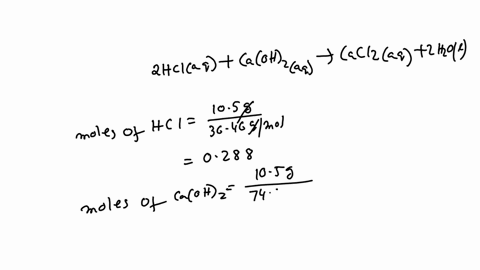 2HCl(aq) + Ca(OH)2(aq) → CaCl2(aq) + 2H2O(l)
moles of HCl = 10.5g / 36.46g/mol
= 0.288
moles of Ca(OH)2 = 10.5g / 74..